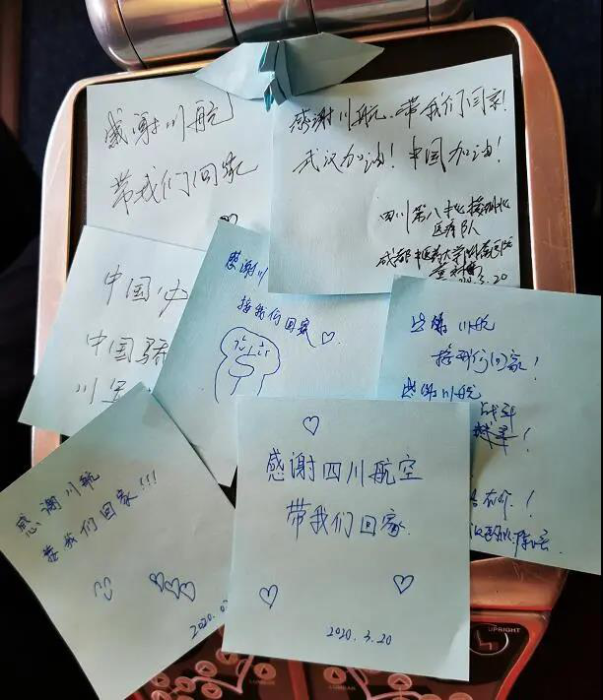 感谢川航
带我们回家
感谢川航、带我们回家!
武汉加油! 中国加油!
四川第八批援湖北
医疗队
成都中医药大学附属医院
3.20
中国
中国骄
川
感谢川
接我们回家♡
感谢川航
接我们回家!
感谢川航
战斗
!
感谢川航
接我们回家!!!
2020.0
感谢四川航空
带我们回家
2020.3.20
UPRIGHT
LUMBAR